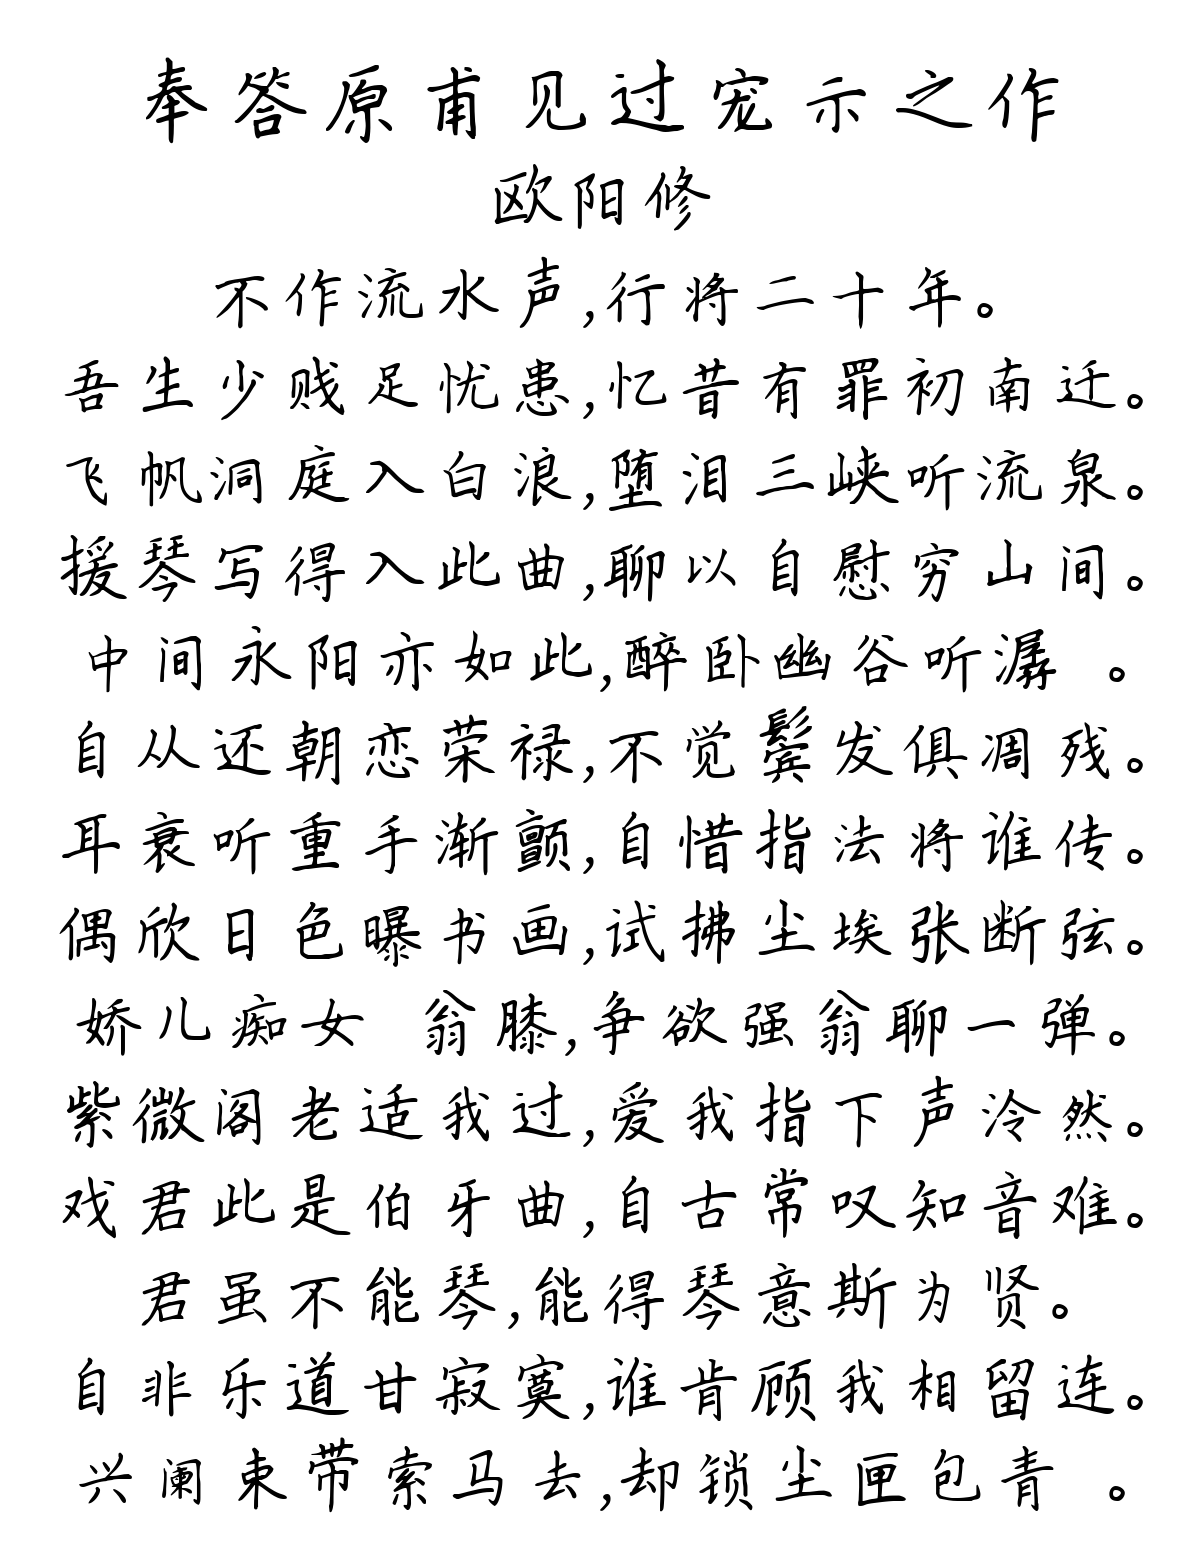 奉答原甫见过宠示之作
欧阳修
不作流水声,行将二十年。
吾生少贱足忧患,忆昔有罪初南迁。
飞帆洞庭入白浪,堕泪三峡听流泉。
援琴写得入此曲,聊以自慰穷山间。
中间永阳亦如此,醉卧幽谷听潺 。
自从还朝恋荣禄,不觉鬓发俱凋残。
耳衰听重手渐颤,自惜指法将谁传。
偶欣日色曝书画,试拂尘埃张断弦。
娇儿痴女 翁膝,争欲强翁聊一弹。
紫微阁老适我过,爱我指下声泠然。
戏君此是伯牙曲,自古常叹知音难。
君虽不能琴,能得琴意斯为贤。
自非乐道甘寂寞,谁肯顾我相留连。
兴阑束带索马去,却锁尘匣包青 。